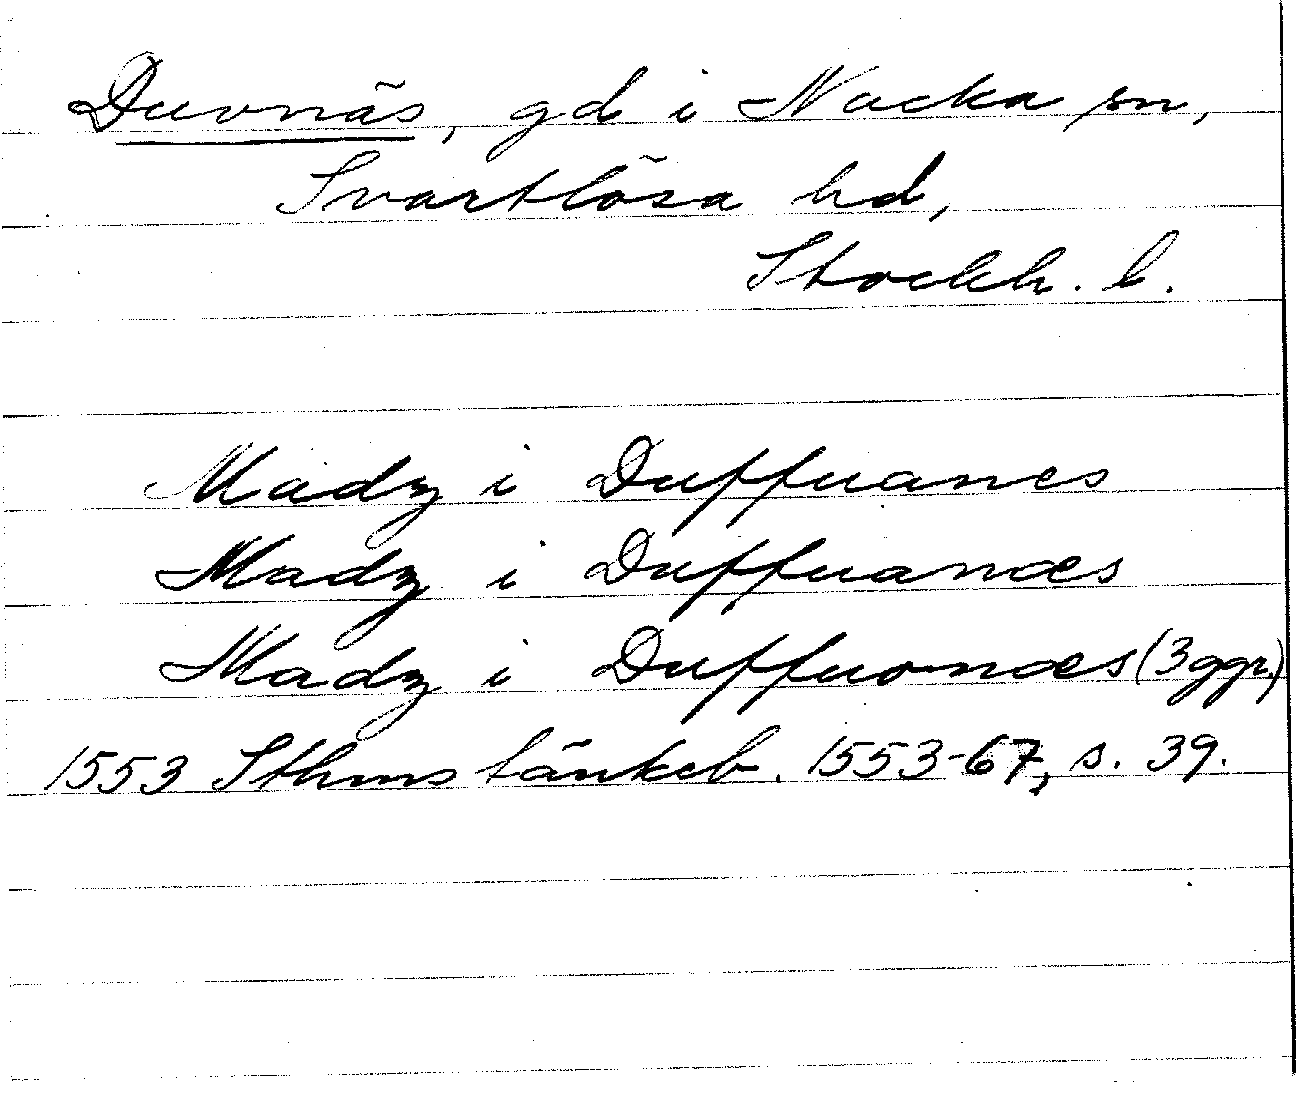 Duvnäs, gd i Nacka sn,
Svartlösa hd,
Stockh. l.
Madz i Duffuanes
Madz i Duffuanæs
Madz i Duffuonæs (3 ggr)
1553 Sthms tänkeb. 1553-67, s. 39.